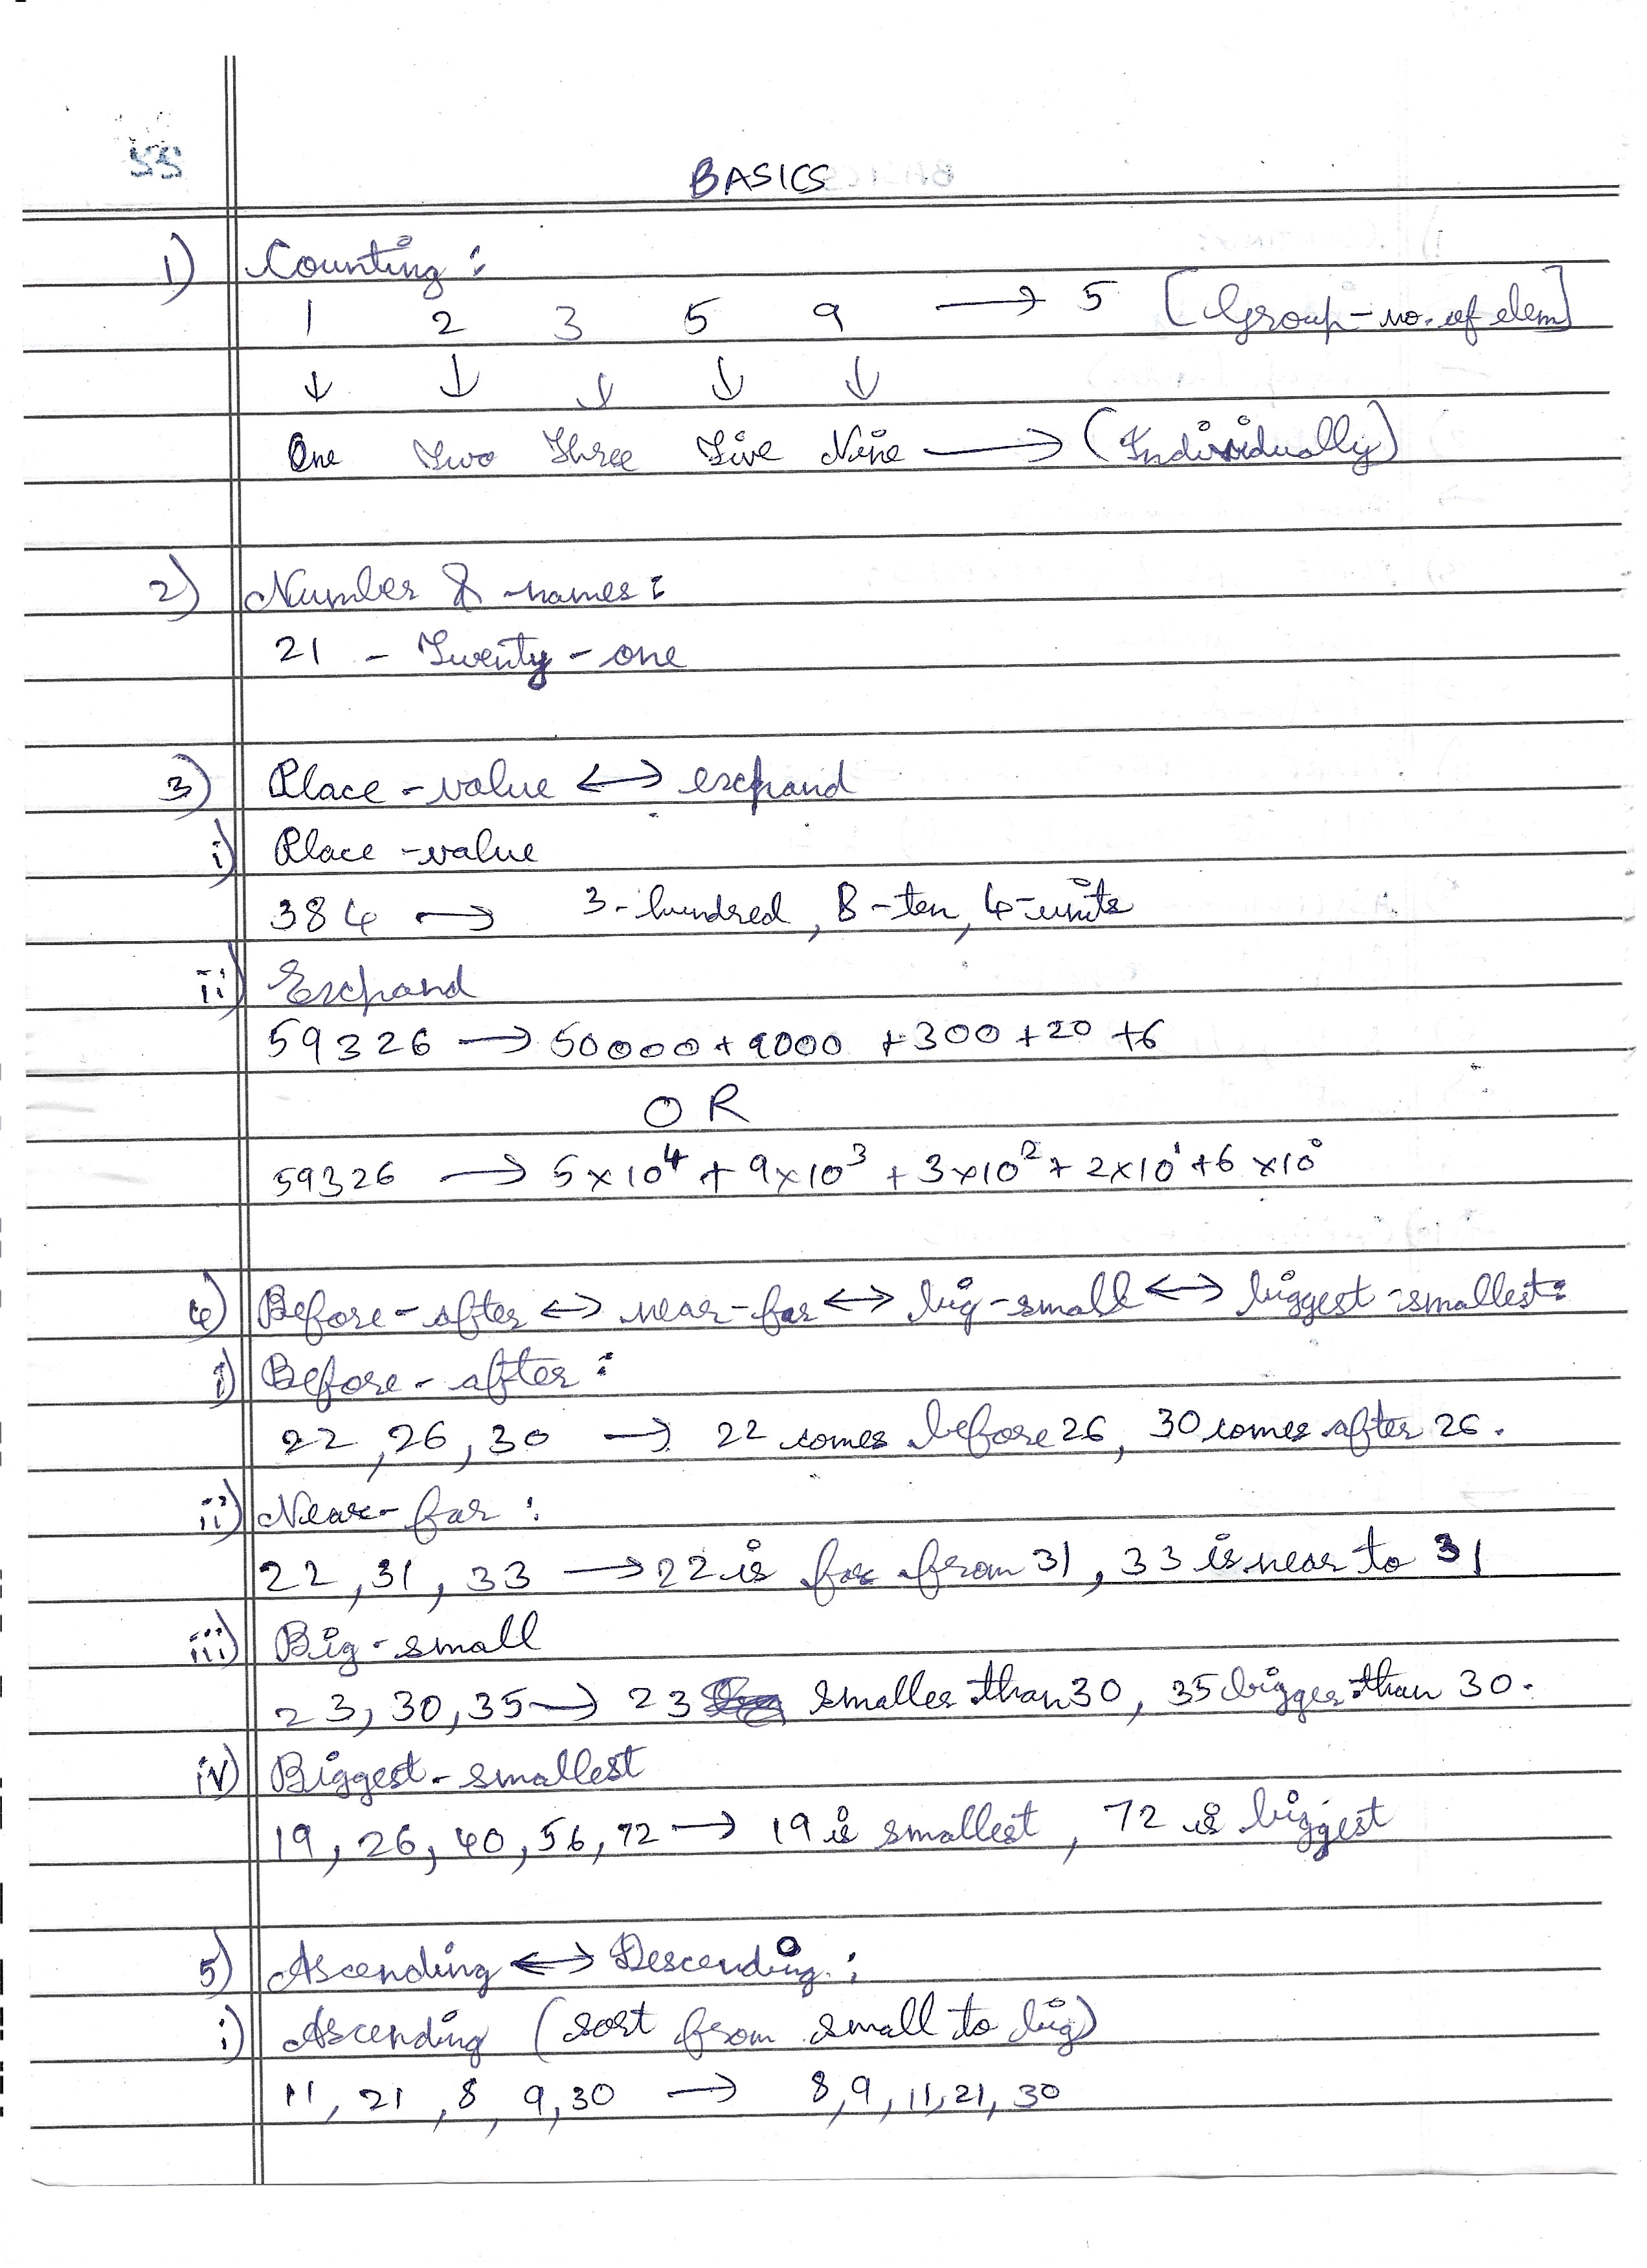 55
BASICS
1) Counting :
1 2 3 5 9 → 5 [Group - no. of elem]
↓ ↓ ↓ ↓ ↓
One Two Three Five Nine → (Individually)
2) Number & names :
21 - Twenty - one
3) Place - value ↔ expand
i) Place - value
384 → 3 - hundred, 8 - ten, 4 - units
ii) Expand
59326 → 50000 + 9000 + 300 + 20 + 6
OR
59326 → 5 × 10⁴ + 9 × 10³ + 3 × 10² + 2 × 10¹ + 6 × 10⁰
4) Before - after ↔ near - far ↔ big - small ↔ biggest - smallest :
i) Before - after :
22, 26, 30 → 22 comes before 26, 30 comes after 26.
ii) Near - far :
22, 31, 33 → 22 is far from 31, 33 is near to 31
iii) Big - small
23, 30, 35 → 23 smaller than 30, 35 bigger than 30.
iv) Biggest - smallest
19, 26, 40, 56, 72 → 19 is smallest, 72 is biggest
5) Ascending ↔ Descending :
i) Ascending (sort from small to big)
11, 21, 8, 9, 30 → 8, 9, 11, 21, 30